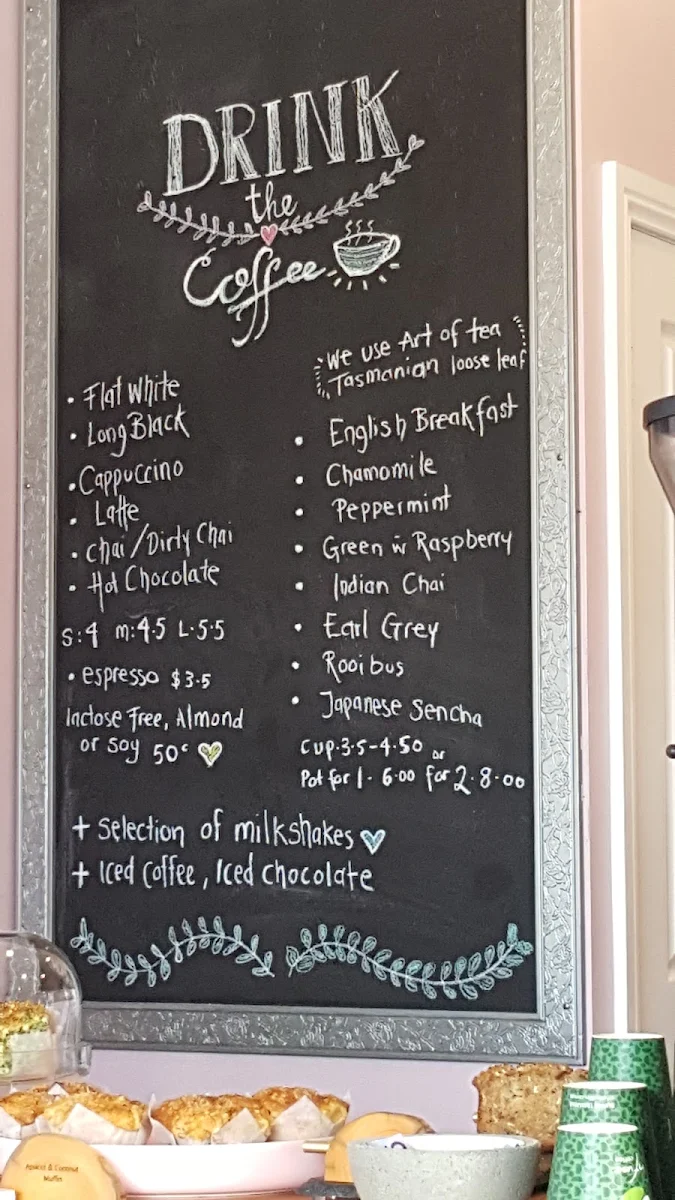 DRINK
the
Coffee
• Flat White
• Long Black
• Cappuccino
• Latte
• Chai / Dirty Chai
• Hot Chocolate
S:4 m:4.5 L.5.5
• espresso $3.5
lactose Free, Almond
or soy 50c
We use Art of tea
Tasmanian loose leaf
• English Breakfast
• Chamomile
• Peppermint
• Green w Raspberry
• Indian Chai
• Earl Grey
• Rooibus
• Japanese Sencha
Cup.3.5-4.50 or
Pot for 1. 6.00 for 2.8.00
+ Selection of milkshakes
+ Iced Coffee, Iced chocolate
Apricot & Coconut
Muffin